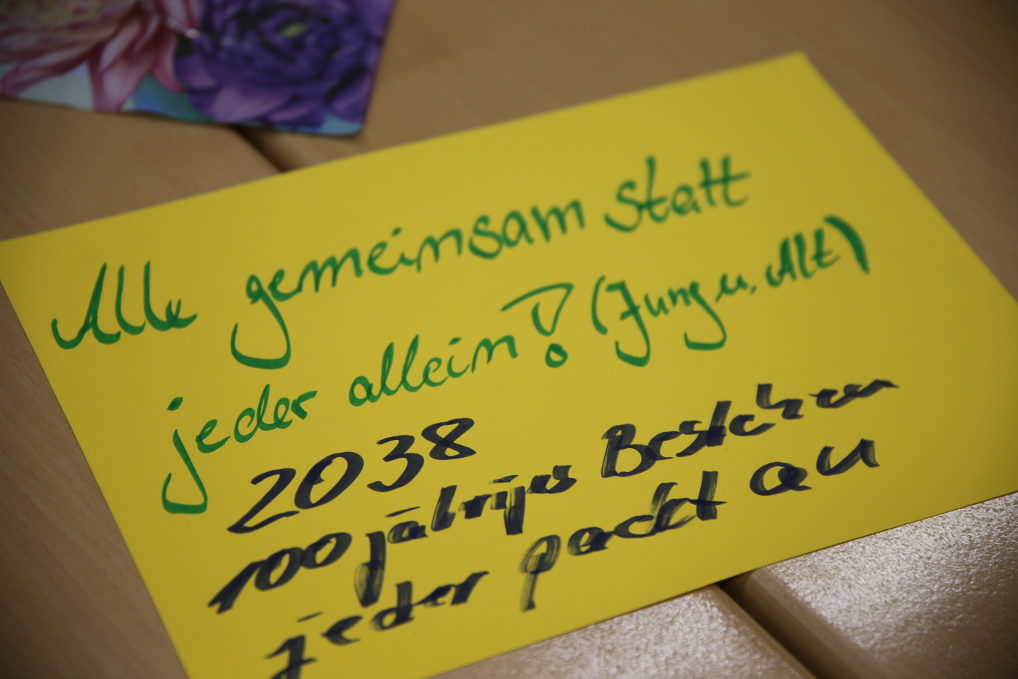 Alle gemeinsam statt
jeder allein! (Jung u. Alt)
2038
100 jähriges Bestehen
jeder packt an